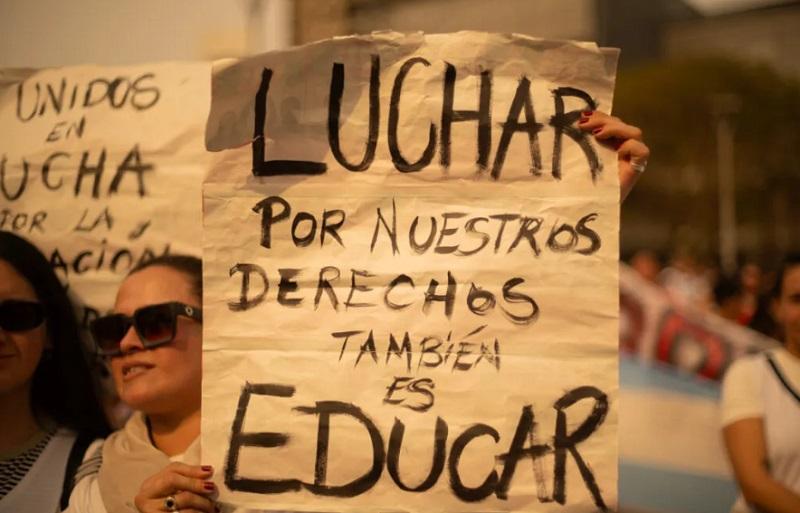 UNIDOS
EN
UCHA
POR LA
ACION
LUCHAR
POR NUESTROS
DERECHOS
TAMBIÉN
ES
EDUCAR